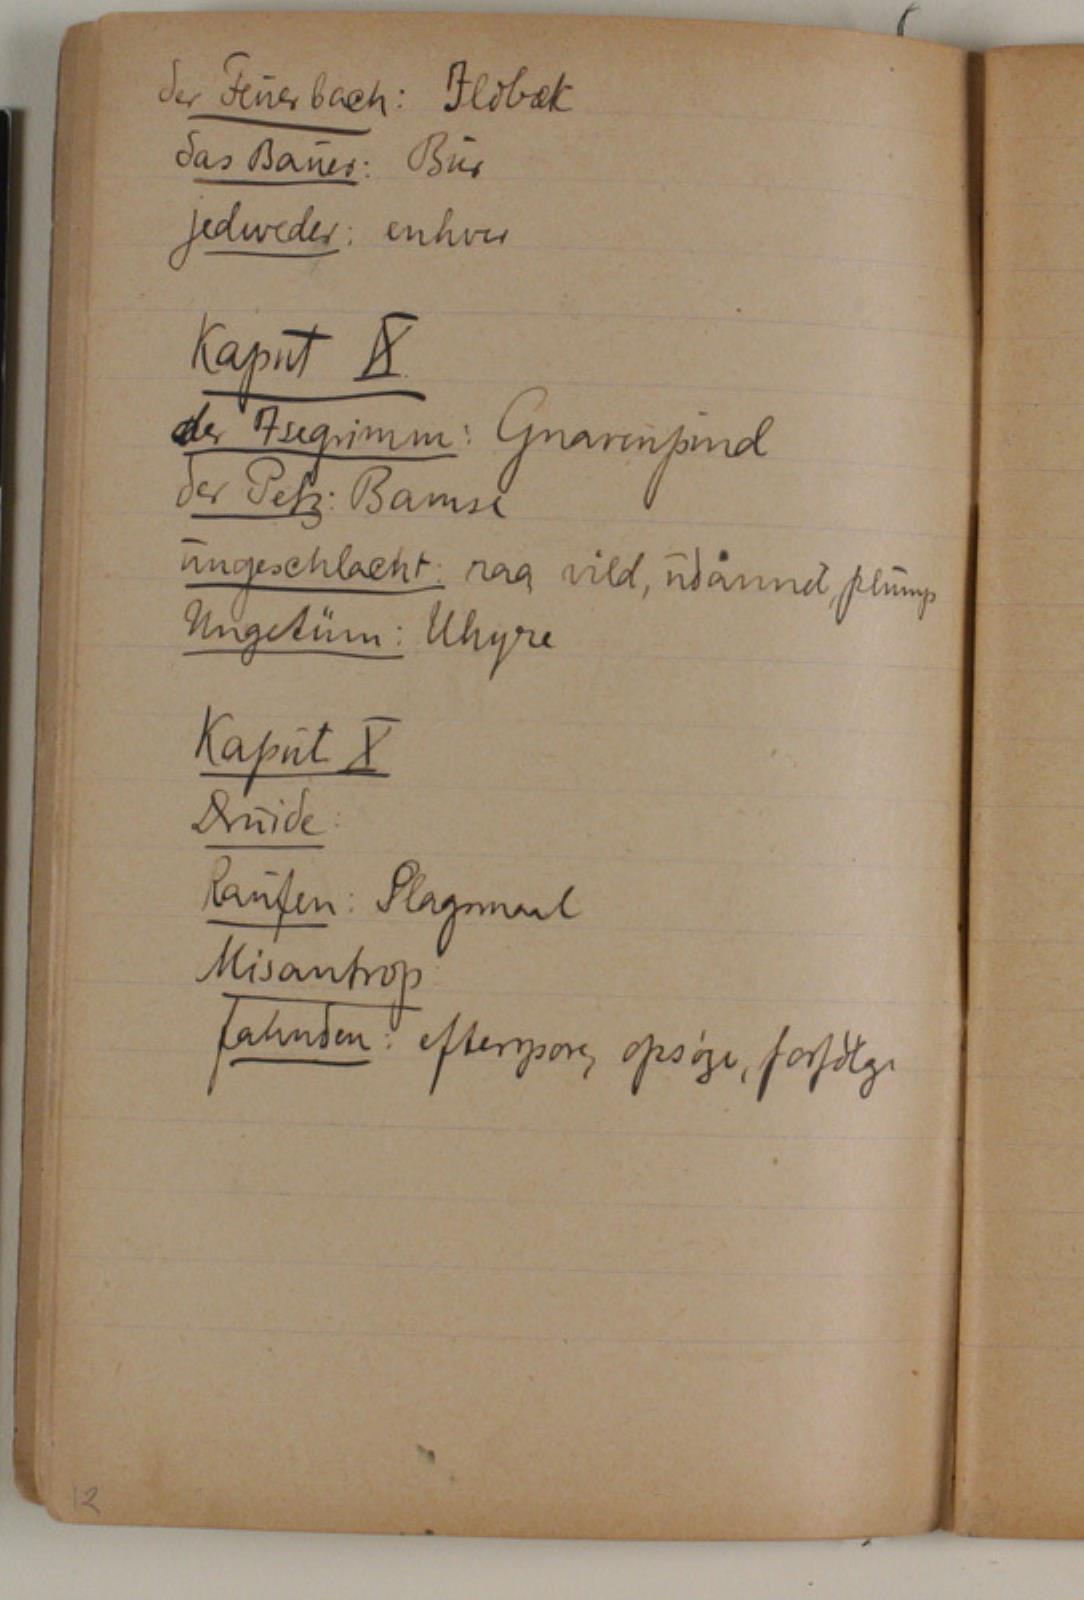 der Feuerbach: Ildbæk
das Bauer: Bur
jedweder: enhver
Kaput IX
der Isegrimm: Gnavenpind
der Petz: Bamse
ungeschlacht: raa vild, udannet, plump
Ungetüm: Uhyre
Kaput X
Druide:
Raufen: Slagsmaal
Misantrop:
fahnden: efterspore, opsøge, forfølge
12